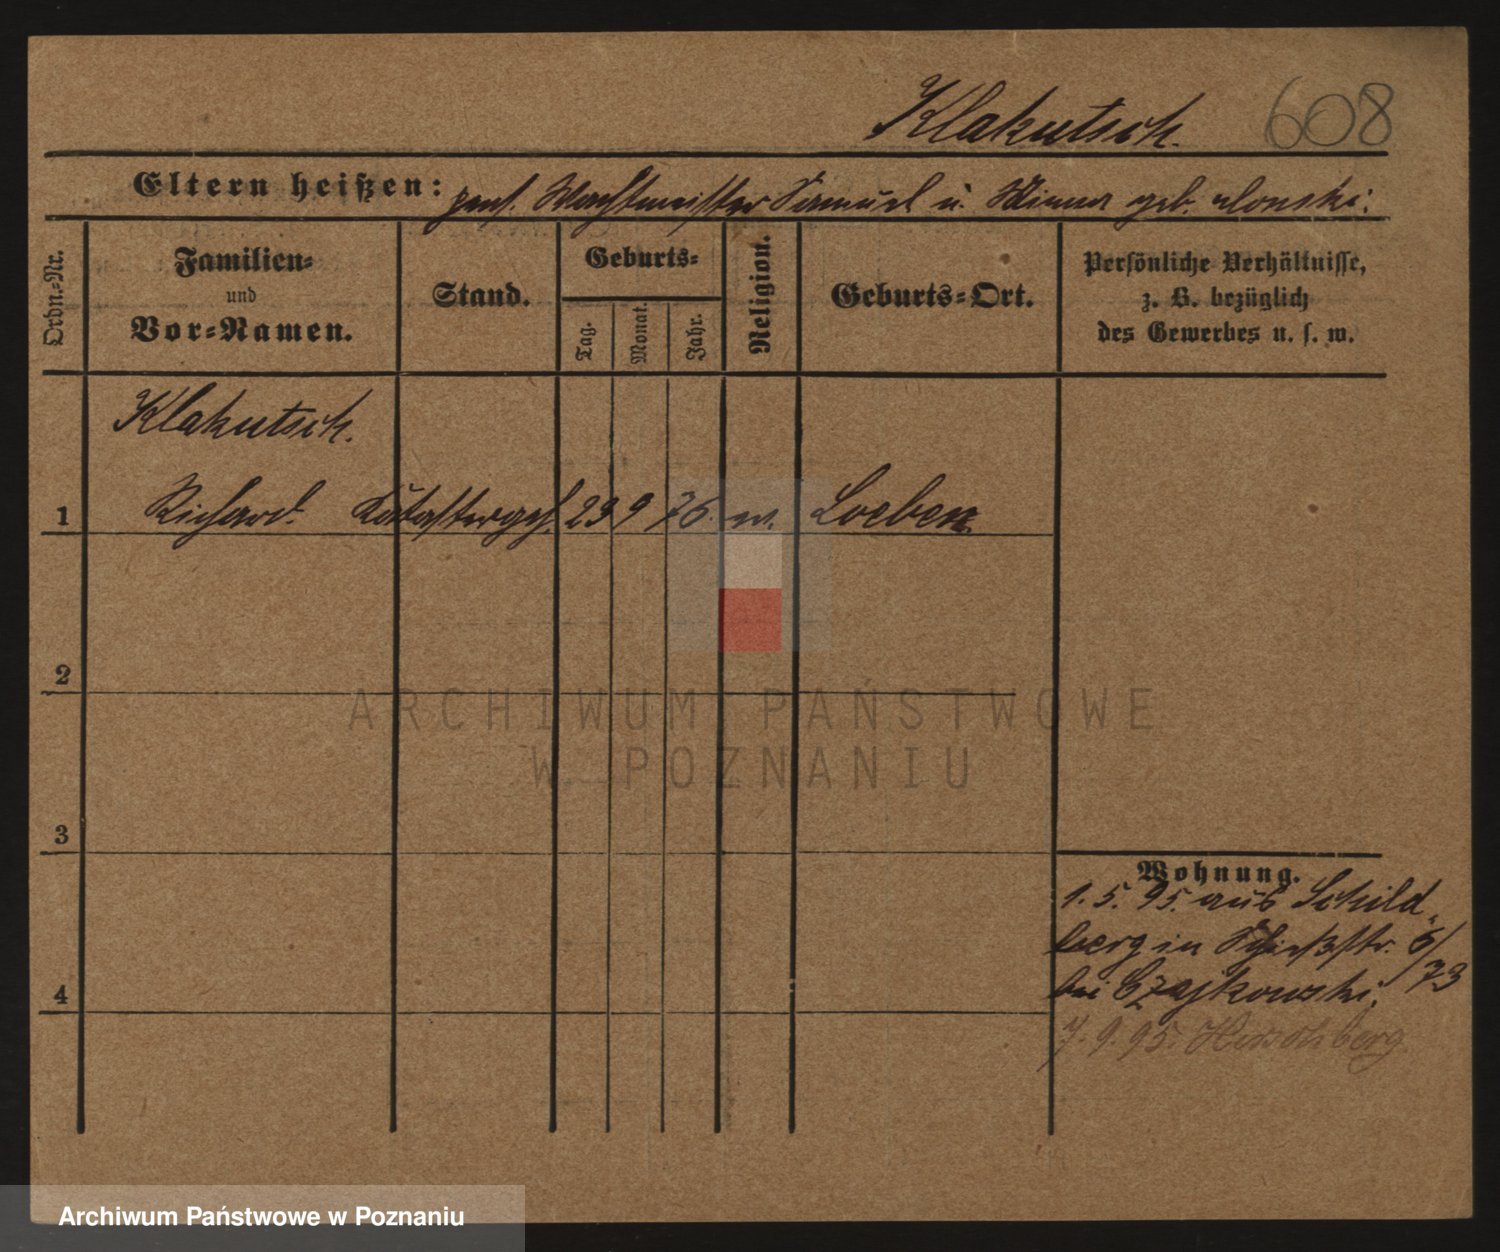 Klakutsch. 608
Eltern heißen: pens. Wachtmeister Samuel u. Minna geb.
Ordn.-Nr.
Familien-
und
Vor-Namen.
Stand.
Geburts-
Tag.
Monat.
Jahr.
Religion.
Geburts-Ort.
Persönliche Verhältnisse,
z. B. bezüglich
des Gewerbes u. s. w.
Klakutsch.
1 Richard. Katastergeh. 23 9 76. ev. Loeben
2
3
4
Wohnung.
1. 5. 95. aus Schild-
berg in Schießstr. 6/
73
bei Czajkowski.
7. 9. 95. Hirschberg
ARCHIWUM PAŃSTWOWE
W POZNANIU
Archiwum Państwowe w Poznaniu